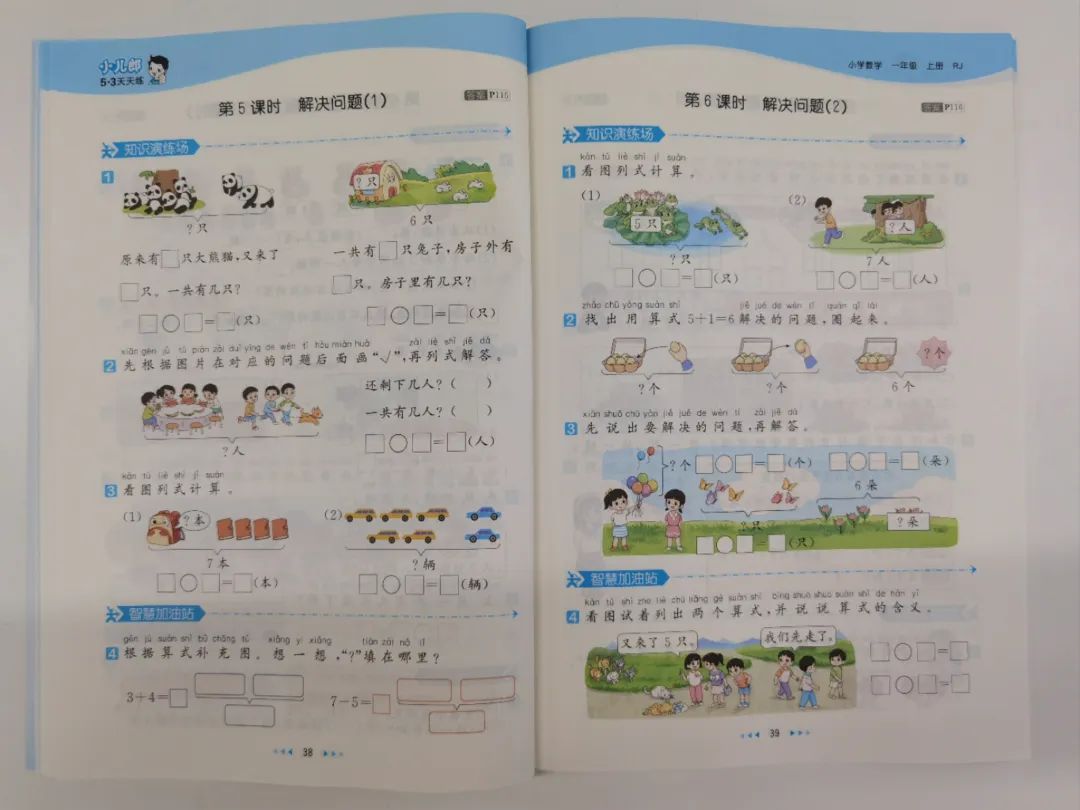 小儿郎
5·3天天练
第5课时 解决问题(1)
答案 P115
知识演练场
1
?只
?只
6只
原来有□只大熊猫,又来了
□只。一共有几只?
□○□=□(只)
一共有□只兔子,房子外有
□只。房子里有几只?
□○□=□(只)
xiān gēn jù tú piàn zài duì yìng de wèn tí hòu miàn huà zài liè shì jiě dá
2 先根据图片在对应的问题后面画“√”,再列式解答。
还剩下几人?( )
一共有几人?( )
?人
□○□=□(人)
kàn tú liè shì jì suàn
3 看图列式计算。
(1)
?本
7本
□○□=□(本)
(2)
?辆
□○□=□(辆)
智慧加油站
gēn jù suàn shì bǔ chōng tú xiǎng yi xiǎng tián zài nǎ lǐ
4 根据算式补充图。想一想,“?”填在哪里?
3+4=□
7-5=□
38
小学数学 一年级 上册 RJ
第6课时 解决问题(2)
答案 P116
知识演练场
kàn tú liè shì jì suàn
1 看图列式计算。
(1)
5只
?只
□○□=□(只)
(2)
?人
7人
□○□=□(人)
zhǎo chū yòng suàn shì jiě jué de wèn tí quān qǐ lái
2 找出用算式5+1=6解决的问题,圈起来。
?个
?个
?个
6个
xiān shuō chū yào jiě jué de wèn tí zài jiě dá
3 先说出要解决的问题,再解答。
?个
□○□=□(个)
□○□=□(朵)
6朵
?朵
?只
□○□=□(只)
智慧加油站
kàn tú shì zhe liè chū liǎng gè suàn shì bìng shuō shuo suàn shì de hán yì
4 看图试着列出两个算式,并说说算式的含义。
又来了5只。
我们先走了。
□○□=□
□○□=□
39